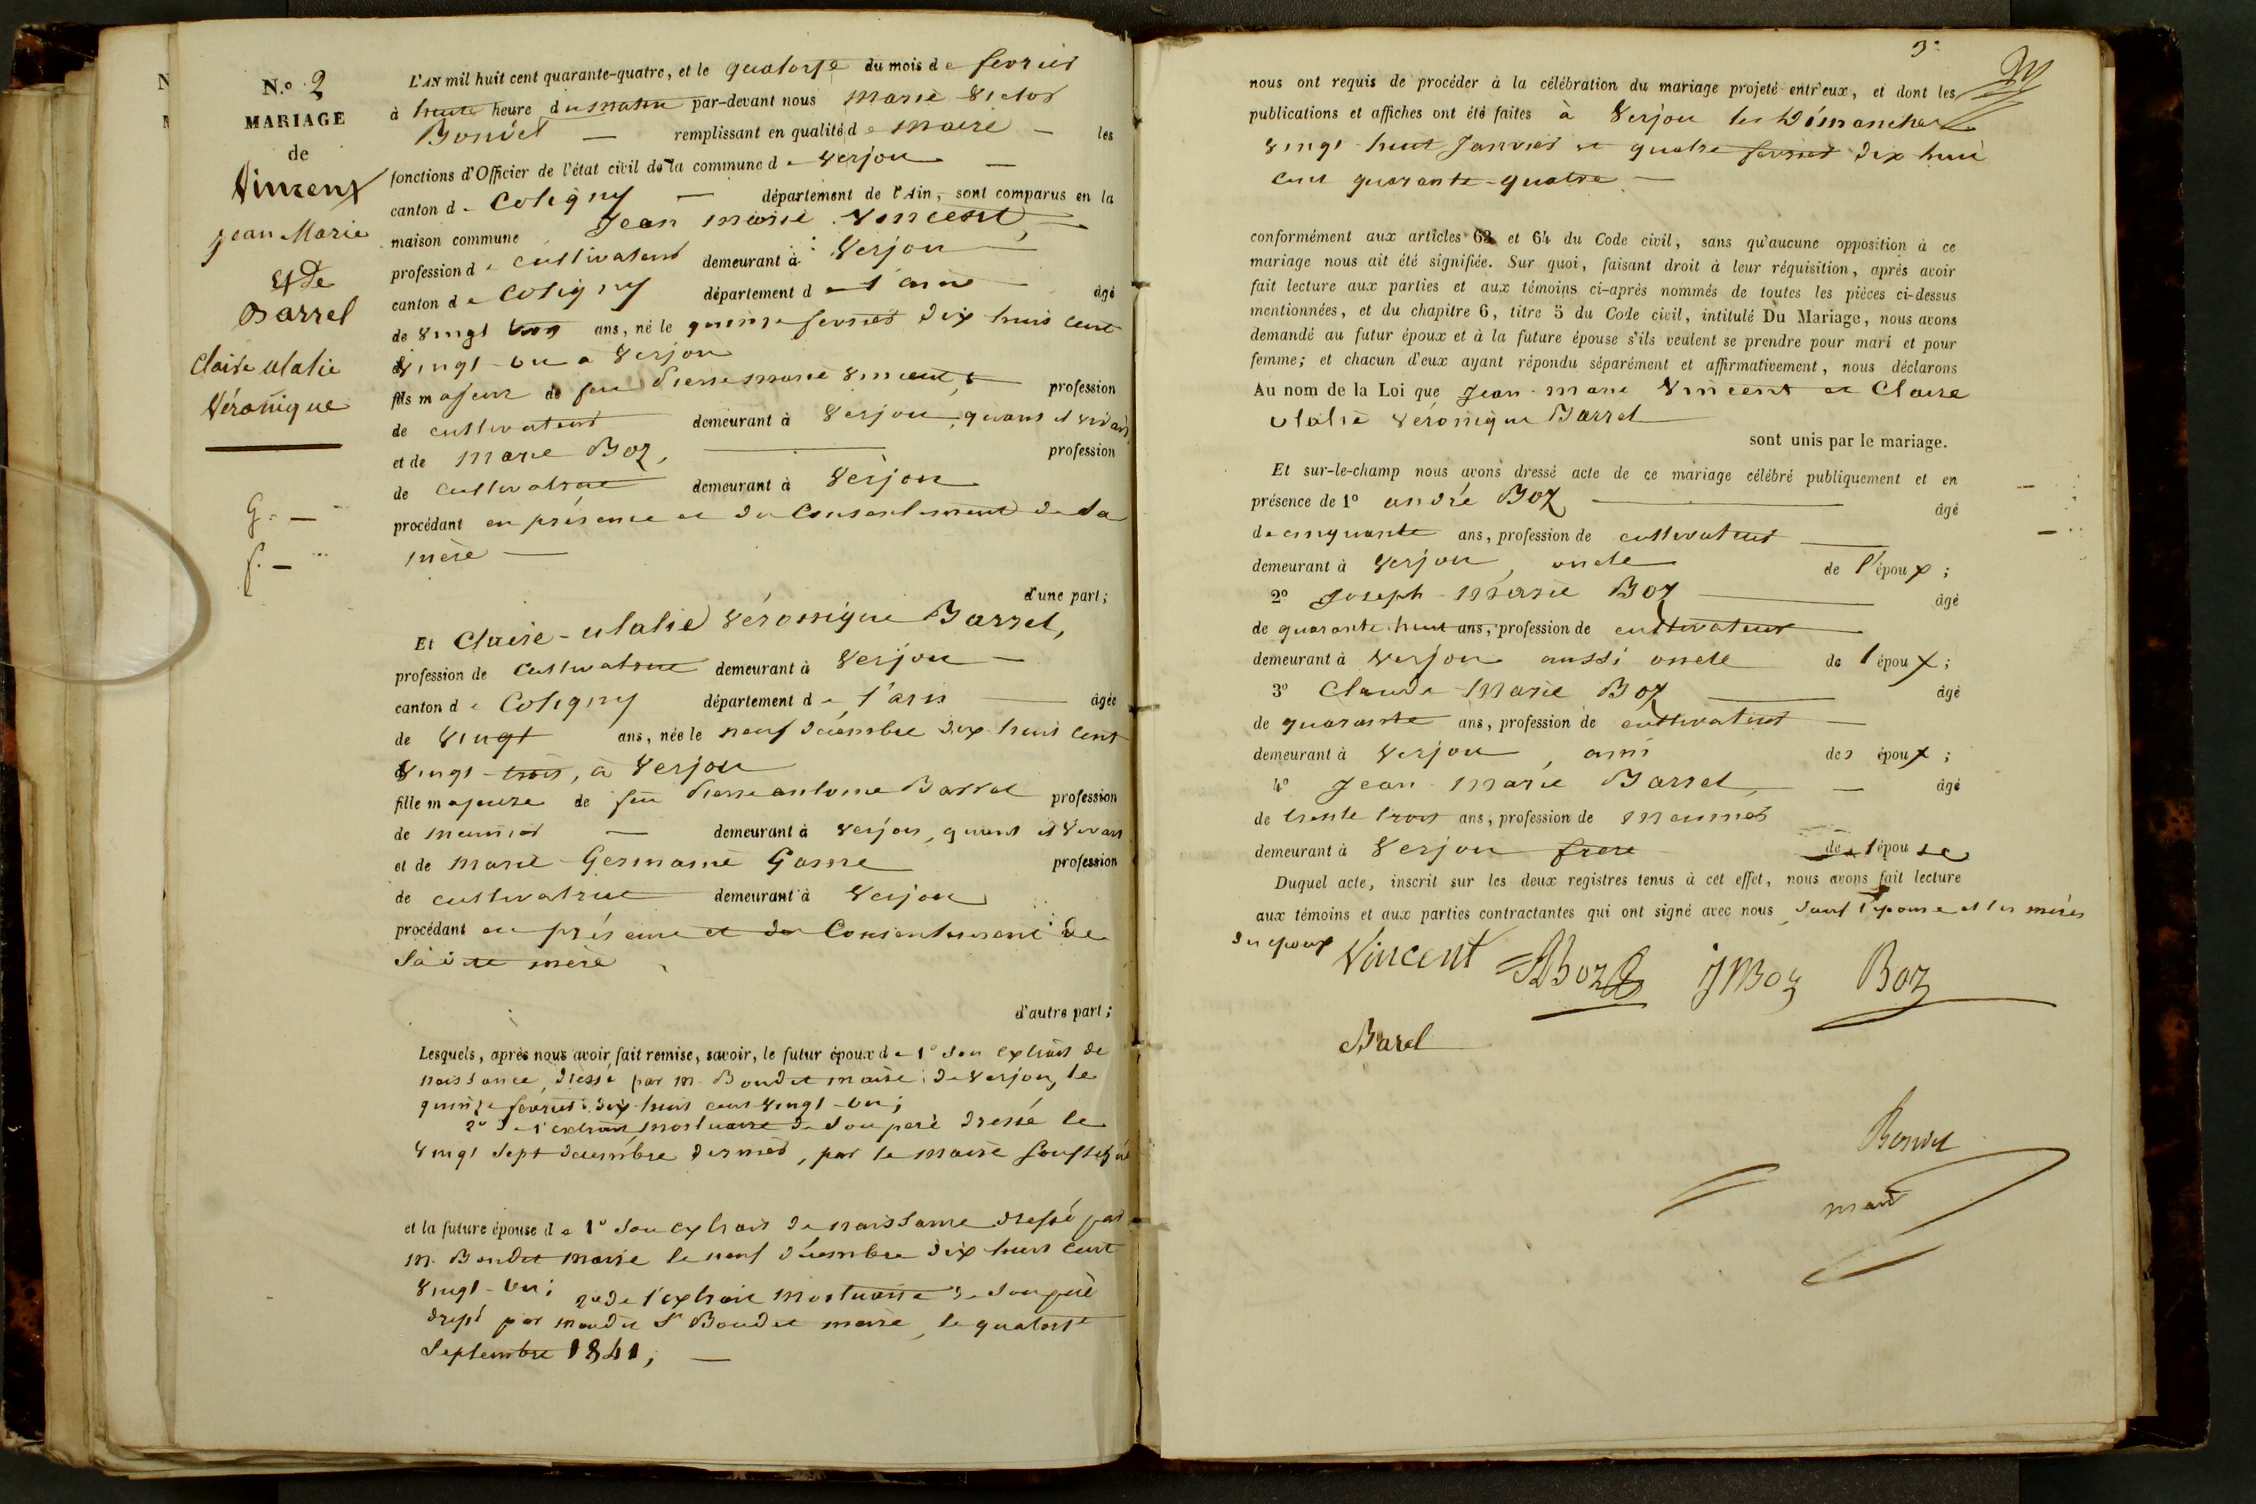 N.º 2
MARIAGE
de
Vincent
Jean Marie
Et De
Barrel
Claire ulalie
Véronique
L'AN mil huit cent quarante-quatre, et le quatorze du mois de fevrier
à heure du matin par-devant nous Marie Victor
Bondet — remplissant en qualité de Maire — les
fonctions d'Officier de l'état civil de la commune de Verjou —
canton de Coligny — département de l'Ain, sont comparus en la
maison commune Jean Marie Vincent,
profession de cultivateur demeurant à Verjou
canton de Coligny département de l'ain — âgé
de vingt ans, né le quinze fevrier dix huit cent
vingt-un à Verjou
fils majeur de feu Pierre marie Vincent, profession
de cultivateur demeurant à Verjou, quand il vivait
et de Marie Boz, profession
de cultivatrice demeurant à Verjou
procédant en présence et du Consentement de sa
mère —
d'une part;
Et Claire-ulalie Véronique Barrel,
profession de Cultivatrice demeurant à Verjou —
canton de Coligny département de l'ain — âgée
de Vingt ans, née le neuf décembre dix huit cent
Vingt-trois, à Verjou
fille majeure de feu Pierre antoine Barrel profession
de meunier — demeurant à Verjou, quand il vivait
et de Marie-Germaine Game profession
de cultivatrice demeurant à Verjou
procédant en présence et du Consentement de
sa mère
d'autre part;
Lesquels, après nous avoir fait remise, savoir, le futur époux de 1º son extrait de
naissance, dressé par M. Bondet maire de Verjou, le
quinze fevrier dix huit cent vingt-un;
2º de l'extrait mortuaire de son père dressé le
vingt sept décembre dernier, par le maire soussigné
et la future épouse de 1º son extrait de naissance dressé par
M. Bondet maire le neuf décembre dix huit cent
vingt-un; 2º de l'extrait mortuaire de son père
dressé par mondit Sr Bondet maire, le quatorze
Septembre 1841, —
3.
nous ont requis de procéder à la célébration du mariage projeté entr'eux, et dont les
publications et affiches ont été faites à Verjou les Dimanches
vingt-huit Janvier et quatre fevrier dix huit
cent quarante-quatre —
conformément aux articles 63 et 64 du Code civil, sans qu'aucune opposition à ce
mariage nous ait été signifiée. Sur quoi, faisant droit à leur réquisition, après avoir
fait lecture aux parties et aux témoins ci-après nommés de toutes les pièces ci-dessus
mentionnées, et du chapitre 6, titre 5 du Code civil, intitulé Du Mariage, nous avons
demandé au futur époux et à la future épouse s'ils veulent se prendre pour mari et pour
femme; et chacun d'eux ayant répondu séparément et affirmativement, nous déclarons
Au nom de la Loi que Jean-Marie Vincent et Claire
Ulalie Véronique Barrel
sont unis par le mariage.
Et sur-le-champ nous avons dressé acte de ce mariage célébré publiquement et en
présence de 1º andré Boz âgé
de cinquante ans, profession de cultivateur
demeurant à Verjou, oncle de l'époux;
2º Joseph-Marie Boz âgé
de quarante huit ans, profession de cultivateur
demeurant à Verjou aussi oncle de l'époux;
3º Claude-Marie Boz âgé
de quarante ans, profession de cultivateur —
demeurant à Verjou, ami des époux;
4º Jean-Marie Barrel — âgé
de trente trois ans, profession de Meunier
demeurant à Verjou frere de l'épouse
Duquel acte, inscrit sur les deux registres tenus à cet effet, nous avons fait lecture
aux témoins et aux parties contractantes qui ont signé avec nous, sauf l'épouse et les mères
des époux
Vincent ABoz JMBoz Boz
Barel
Bondet
maire